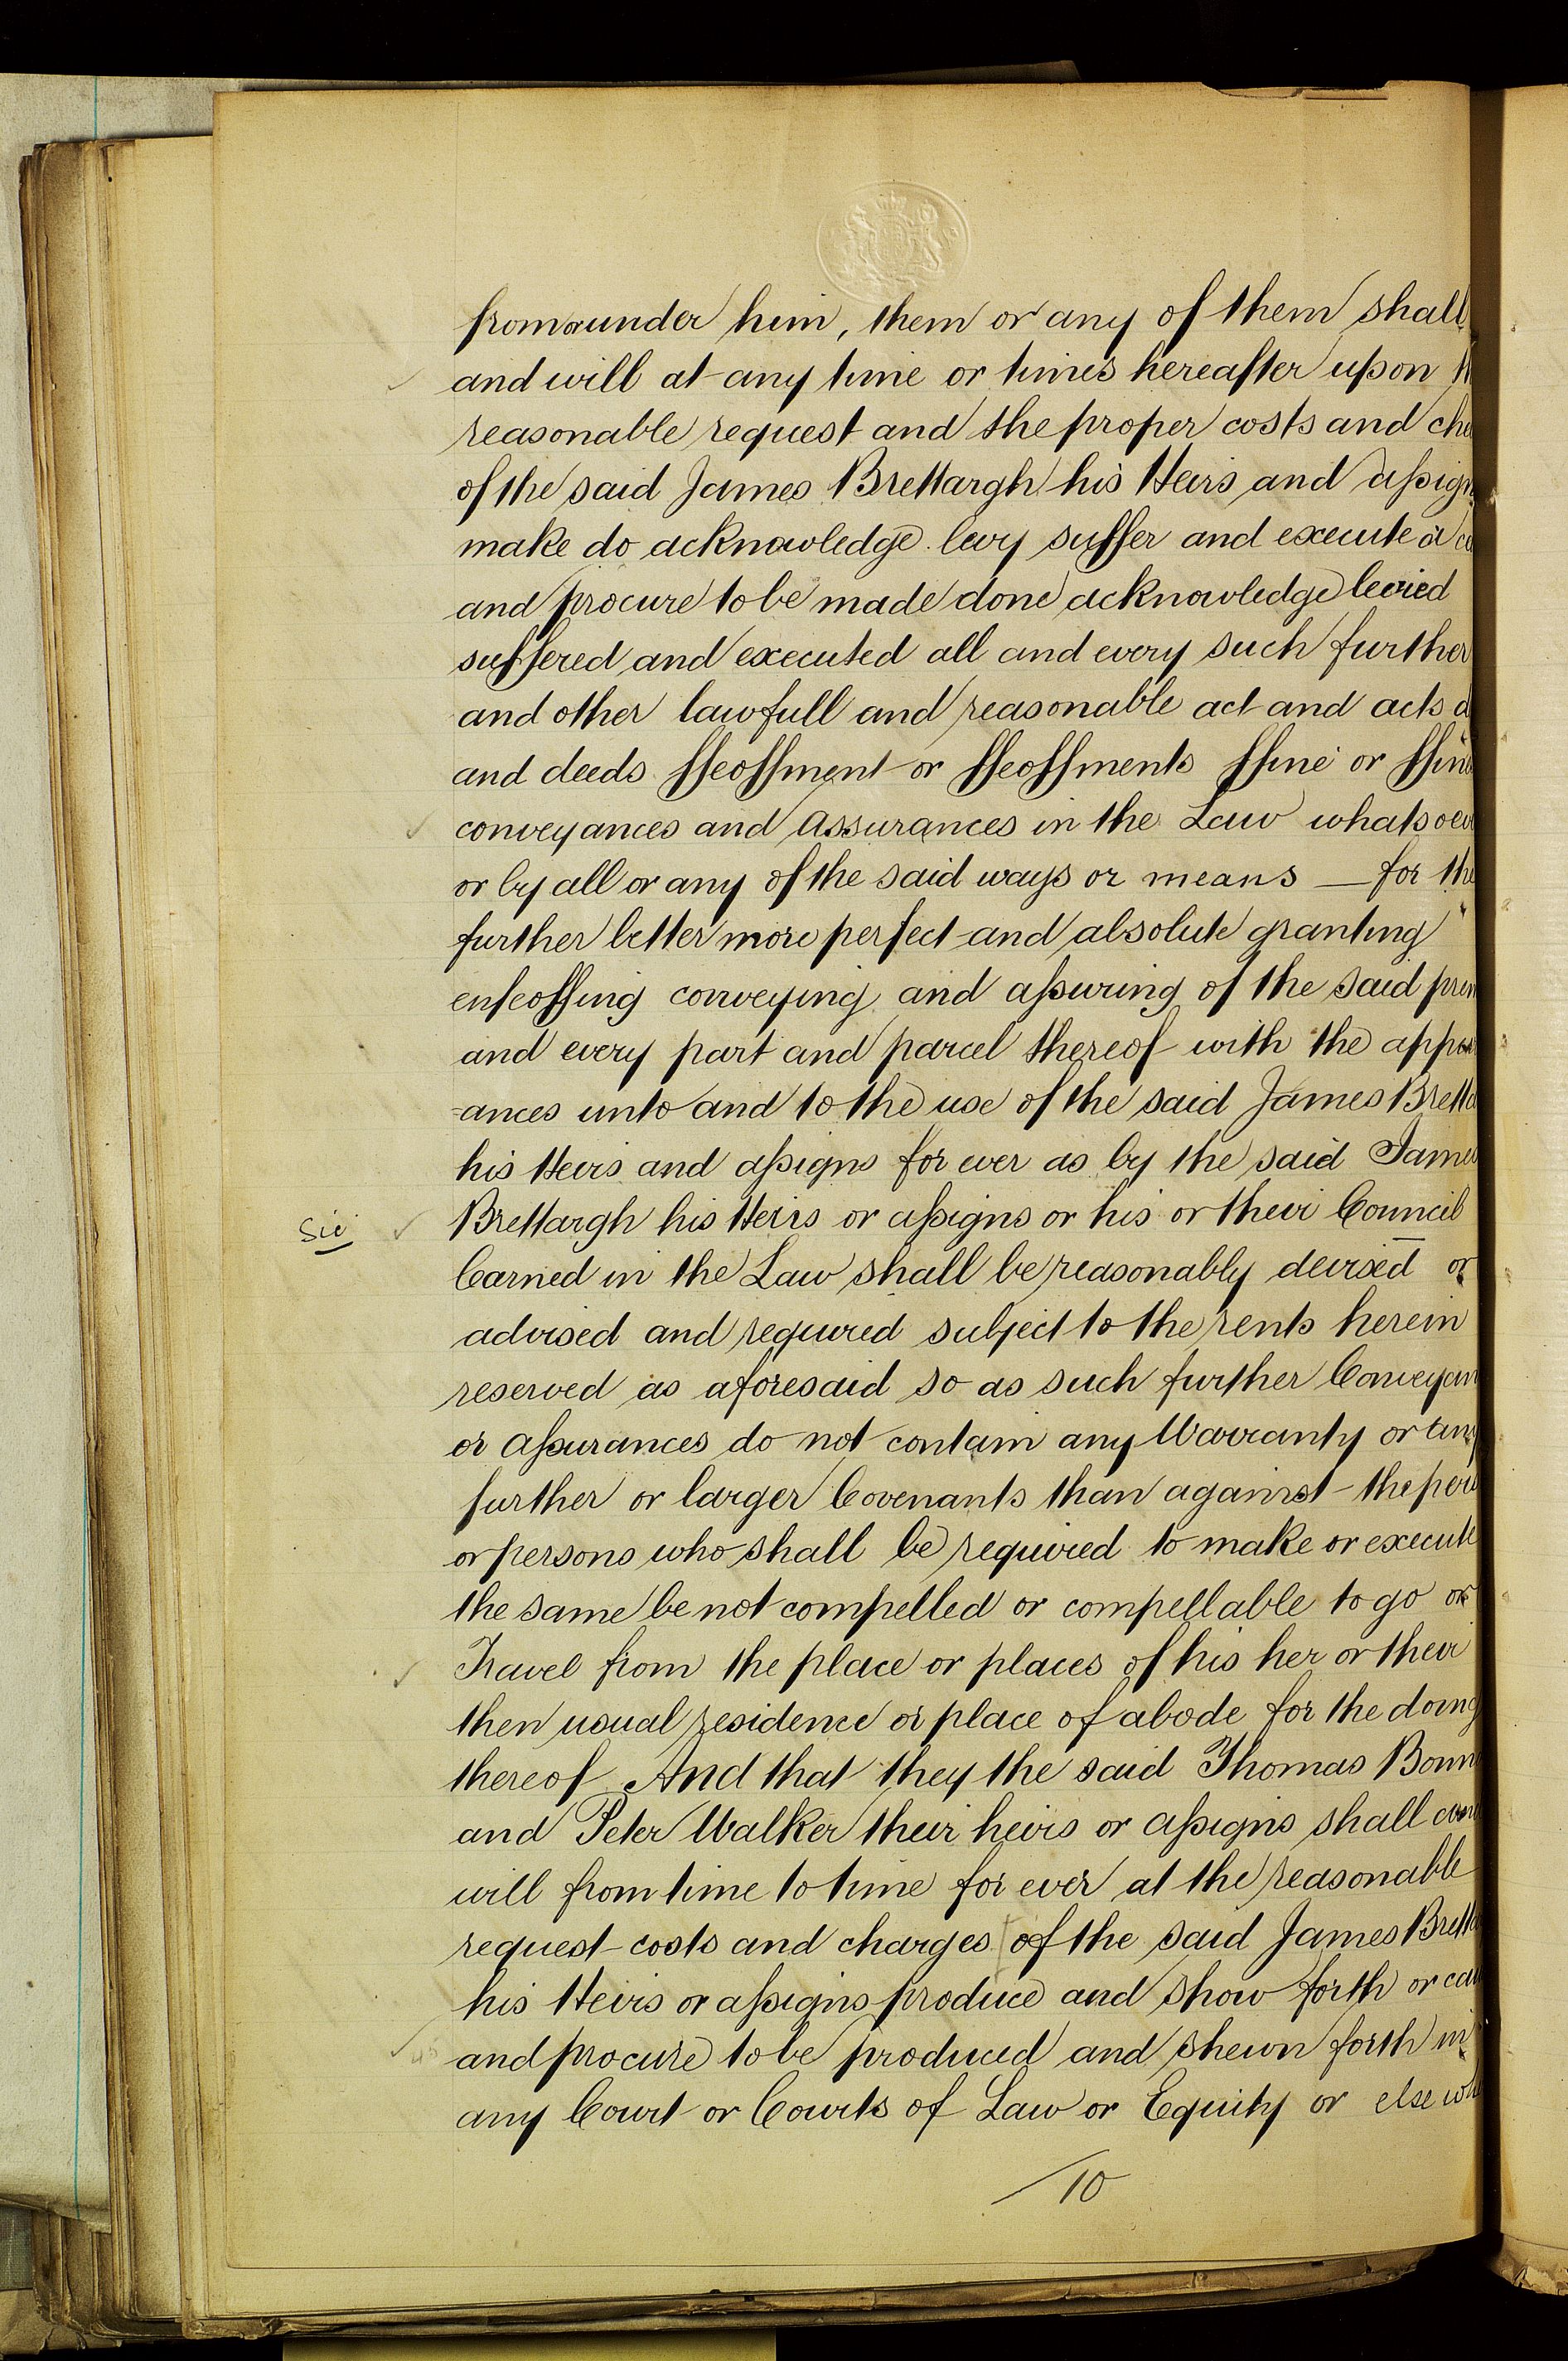 from or under him, them or any of them shall
and will at any time or times hereafter upon
reasonable request and the proper costs and
of the said James Brettargh his Heirs and assign
make do acknowledge levy suffer and execute or
and procure to be made done acknowledge levied
suffered and executed all and every such further
and other lawfull and reasonable act and acts
and deeds ffeoffment or ffeoffments ffine or ffine
conveyances and Assurances in the Law whatsoev
or by all or any of the said ways or means — for the
further better more perfect and absolute granting
enfeoffing conveying and assuring of the said prem
and every part and parcel thereof with the appur
-ances unto and to the use of the said James Bretta
his Heirs and assigns for ever as by the said James
Sic Brettargh his Heirs or assigns or his or their Council
learned in the Law shall be reasonably devised or
advised and required subject to the rents herein
reserved as aforesaid so as such further Conveyan
or assurances do not contain any Warranty or any
further or larger Covenants than against the per
or persons who shall be required to make or execute
the same be not compelled or compellable to go or
Travel from the place or places of his her or their
then usual residence or place of abode for the doing
thereof And that they the said Thomas Bonn
and Peter Walker their heirs or assigns shall
will from time to time for ever at the reasonable
request costs and charges of the said James Brett
his Heirs or assigns produce and show forth or cau
and procure to be produced and shewn forth in
any Court or Courts of Law or Equity or else wh
10